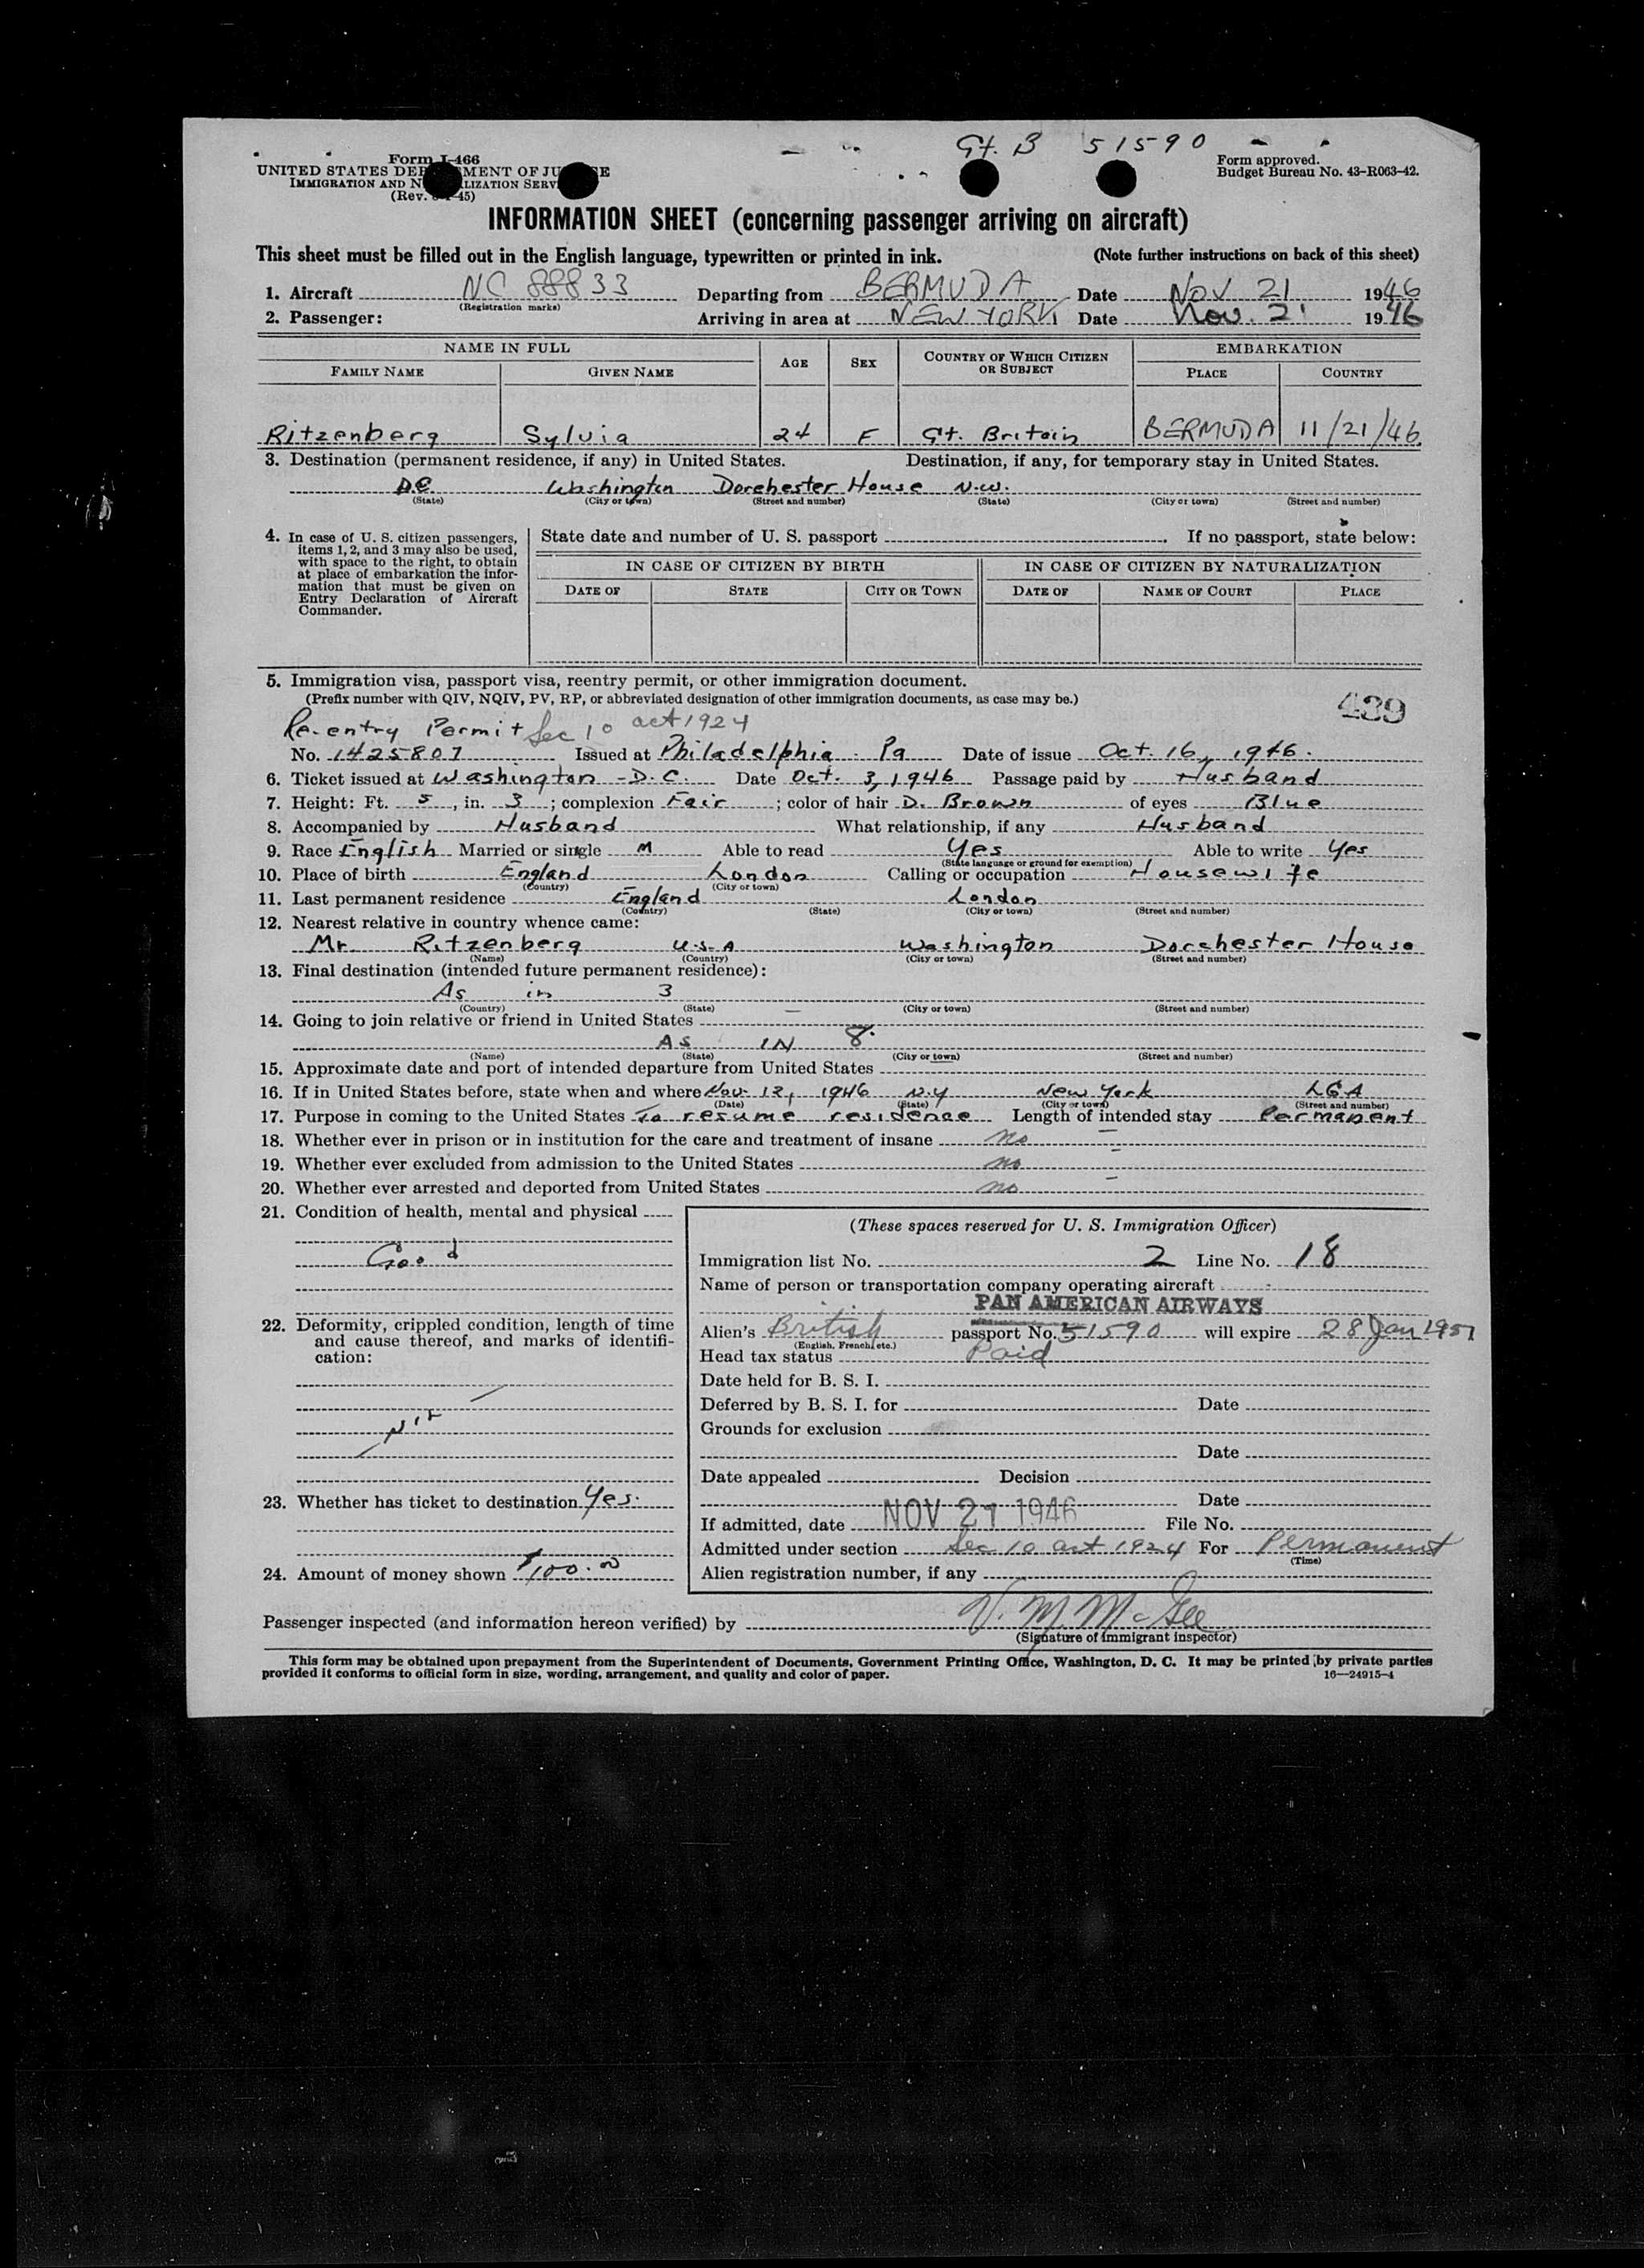 Gt. B 51590
Form I-466
UNITED STATES DEP MENT OF JU E
IMMIGRATION AND N LIZATION SERV
(Rev. 45)
Form approved.
Budget Bureau No. 43-R063-42.
INFORMATION SHEET (concerning passenger arriving on aircraft)
This sheet must be filled out in the English language, typewritten or printed in ink. (Note further instructions on back of this sheet)
1. Aircraft NC 88833 Departing from BERMUDA Date NOV 21 1946
(Registration marks)
2. Passenger: Arriving in area at NEW YORK Date Nov. 21 1946
NAME IN FULL AGE SEX COUNTRY OF WHICH CITIZEN OR SUBJECT EMBARKATION
FAMILY NAME GIVEN NAME PLACE COUNTRY
Ritzenberg Sylvia 24 F Gt. Britain BERMUDA 11/21/46
3. Destination (permanent residence, if any) in United States. Destination, if any, for temporary stay in United States.
D.C. Washington Dorchester House N.W.
(State) (City or town) (Street and number) (State) (City or town) (Street and number)
4. In case of U. S. citizen passengers, items 1, 2, and 3 may also be used, with space to the right, to obtain at place of embarkation the information that must be given on Entry Declaration of Aircraft Commander.
State date and number of U. S. passport . If no passport, state below:
IN CASE OF CITIZEN BY BIRTH IN CASE OF CITIZEN BY NATURALIZATION
DATE OF STATE CITY OR TOWN DATE OF NAME OF COURT PLACE
5. Immigration visa, passport visa, reentry permit, or other immigration document.
(Prefix number with QIV, NQIV, PV, RP, or abbreviated designation of other immigration documents, as case may be.)
439
Re-entry Permit Sec 10 act 1924
No. 1425807 Issued at Philadelphia Pa Date of issue Oct. 16, 1946.
6. Ticket issued at Washington - D.C. Date Oct. 3, 1946 Passage paid by Husband
7. Height: Ft. 5, in. 3; complexion Fair; color of hair D. Brown of eyes Blue
8. Accompanied by Husband What relationship, if any Husband
9. Race English Married or single M Able to read Yes Able to write Yes
(State language or ground for exemption)
10. Place of birth England London Calling or occupation Housewife
(Country) (City or town)
11. Last permanent residence England London
(Country) (State) (City or town) (Street and number)
12. Nearest relative in country whence came:
Mr. Ritzenberg U.S.A Washington Dorchester House
(Name) (Country) (City or town) (Street and number)
13. Final destination (intended future permanent residence):
As in 3
(Country) (State) (City or town) (Street and number)
14. Going to join relative or friend in United States
AS IN 8.
(Name) (State) (City or town) (Street and number)
15. Approximate date and port of intended departure from United States
16. If in United States before, state when and where Nov. 12, 1946 N.Y New York LGA
(Date) (State) (City or town) (Street and number)
17. Purpose in coming to the United States To resume residence Length of intended stay Permanent
18. Whether ever in prison or in institution for the care and treatment of insane no
19. Whether ever excluded from admission to the United States no
20. Whether ever arrested and deported from United States no
21. Condition of health, mental and physical
Good
22. Deformity, crippled condition, length of time and cause thereof, and marks of identification:
Nil
23. Whether has ticket to destination Yes.
24. Amount of money shown $100.00
(These spaces reserved for U. S. Immigration Officer)
Immigration list No. 2 Line No. 18
Name of person or transportation company operating aircraft
PAN AMERICAN AIRWAYS
Alien's British passport No. 51590 will expire 28 Jan 1951
(English, French, etc.)
Head tax status Paid
Date held for B. S. I.
Deferred by B. S. I. for Date
Grounds for exclusion
Date
Date appealed Decision
Date
If admitted, date NOV 21 1946 File No.
Admitted under section Sec 10 act 1924 For Permanent
(Time)
Alien registration number, if any
Passenger inspected (and information hereon verified) by V. M. McGee
(Signature of immigrant inspector)
This form may be obtained upon prepayment from the Superintendent of Documents, Government Printing Office, Washington, D. C. It may be printed by private parties
provided it conforms to official form in size, wording, arrangement, and quality and color of paper. 16—24915-4